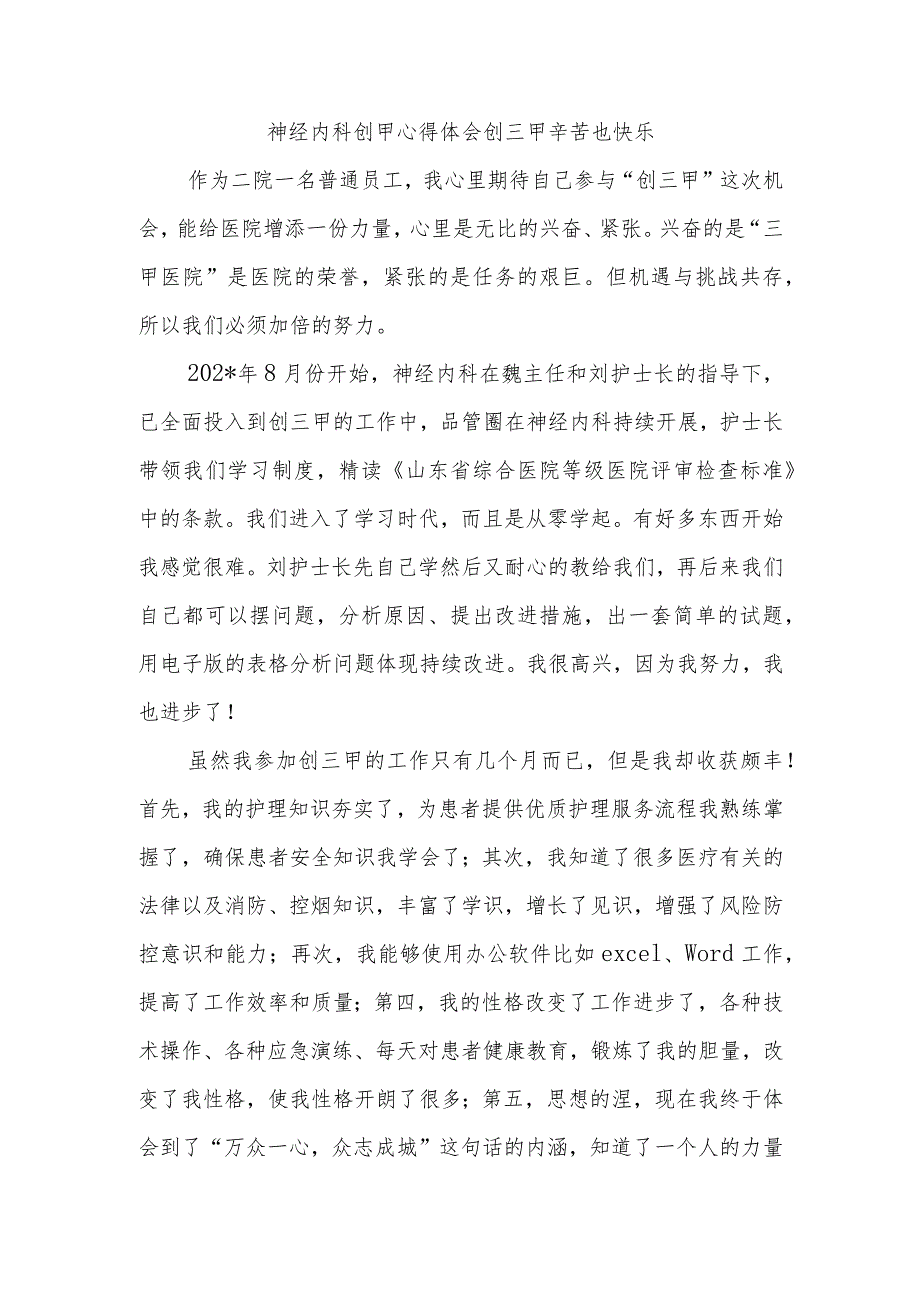 神经内科创甲心得体会创三甲辛苦也快乐
作为二院一名普通员工，我心里期待自己参与“创三甲”这次机
会，能给医院增添一份力量，心里是无比的兴奋、紧张。兴奋的是“三
甲医院”是医院的荣誉，紧张的是任务的艰巨。但机遇与挑战共存，
所以我们必须加倍的努力。
202*年8月份开始，神经内科在魏主任和刘护士长的指导下，
已全面投入到创三甲的工作中，品管圈在神经内科持续开展，护士长
带领我们学习制度，精读《山东省综合医院等级医院评审检查标准》
中的条款。我们进入了学习时代，而且是从零学起。有好多东西开始
我感觉很难。刘护士长先自己学然后又耐心的教给我们，再后来我们
自己都可以摆问题，分析原因、提出改进措施，出一套简单的试题，
用电子版的表格分析问题体现持续改进。我很高兴，因为我努力，我
也进步了！
虽然我参加创三甲的工作只有几个月而已，但是我却收获颇丰！
首先，我的护理知识夯实了，为患者提供优质护理服务流程我熟练掌
握了，确保患者安全知识我学会了；其次，我知道了很多医疗有关的
法律以及消防、控烟知识，丰富了学识，增长了见识，增强了风险防
控意识和能力；再次，我能够使用办公软件比如excel、Word工作，
提高了工作效率和质量；第四，我的性格改变了工作进步了，各种技
术操作、各种应急演练、每天对患者健康教育，锻炼了我的胆量，改
变了我性格，使我性格开朗了很多；第五，思想的涅，现在我终于体
会到了“万众一心，众志成城”这句话的内涵，知道了一个人的力量